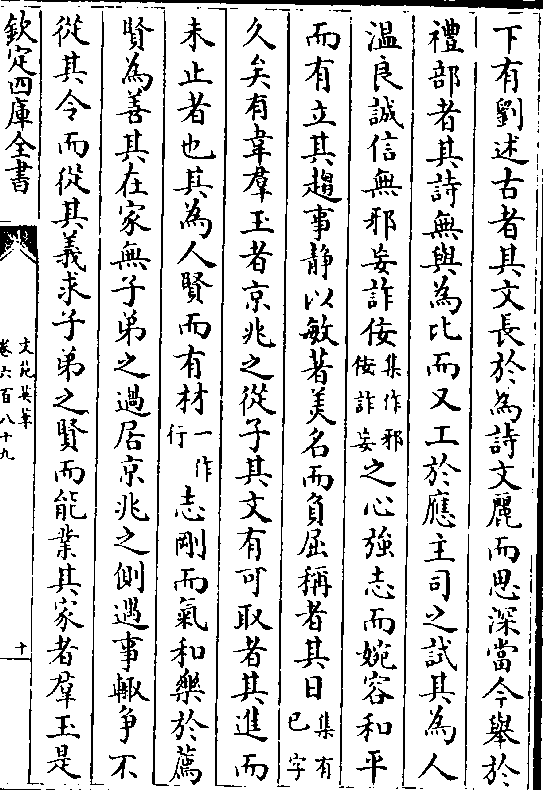 下有劉述古者其文長於為詩文麗而思深當今舉於
禮部者其詩無與為比而又工於應主司之試其為人
溫良誠信無邪妄詐佞集作邪佞詐妄之心強志而婉容和平
而有立其趨事靜以敏著美名而負屈稱者其日集有已字
久矣有韋羣玉者京兆之從子其文有可取者其進而
未止者也其為人賢而有材一作行志剛而氣和樂於薦
賢為善其在家無子弟之過居京兆之側遇事輙争不
從其令而從其義求子弟之賢而能業其家者羣玉是
欽定四庫全書
文苑英華
卷六百八十九
十